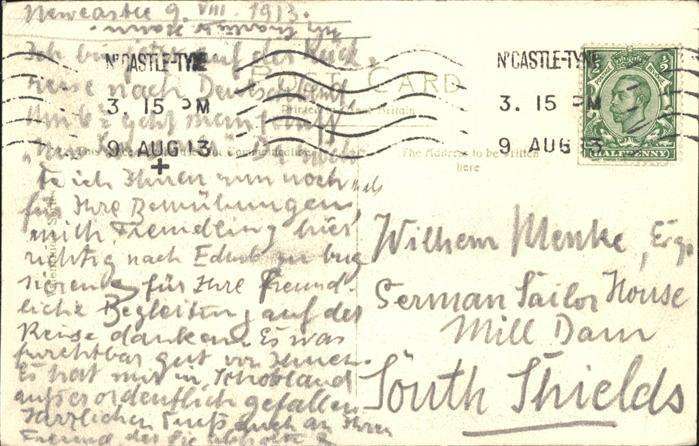 Newcastle 9. VIII. 1913.
Ich bin jetzt auf der Rück
reise nach Deutschland
geht mein
ich Ihnen nun noch
für Ihre Bemühungen,
mich Fremdling hier
richtig nach Edinb zu bug
sieren, für Ihre freund
liche Begleitung auf der
Reise danken. Es was
furchtbar gut von Ihnen.
Es hat mir in Schottland
außerordentlich gefallen.
Herzlichen Gruß auch an Ihren
Freund der Sie
POST CARD
The Address to be written
here
N'CASTLE-TYNE
3. 15 PM
9 AUG 13
N'CASTLE-TYNE
3. 15 PM
9 AUG 13
HALFPENNY
Wilhelm Menke, Esqr.
German Sailor House
Mill Dam
South Shields